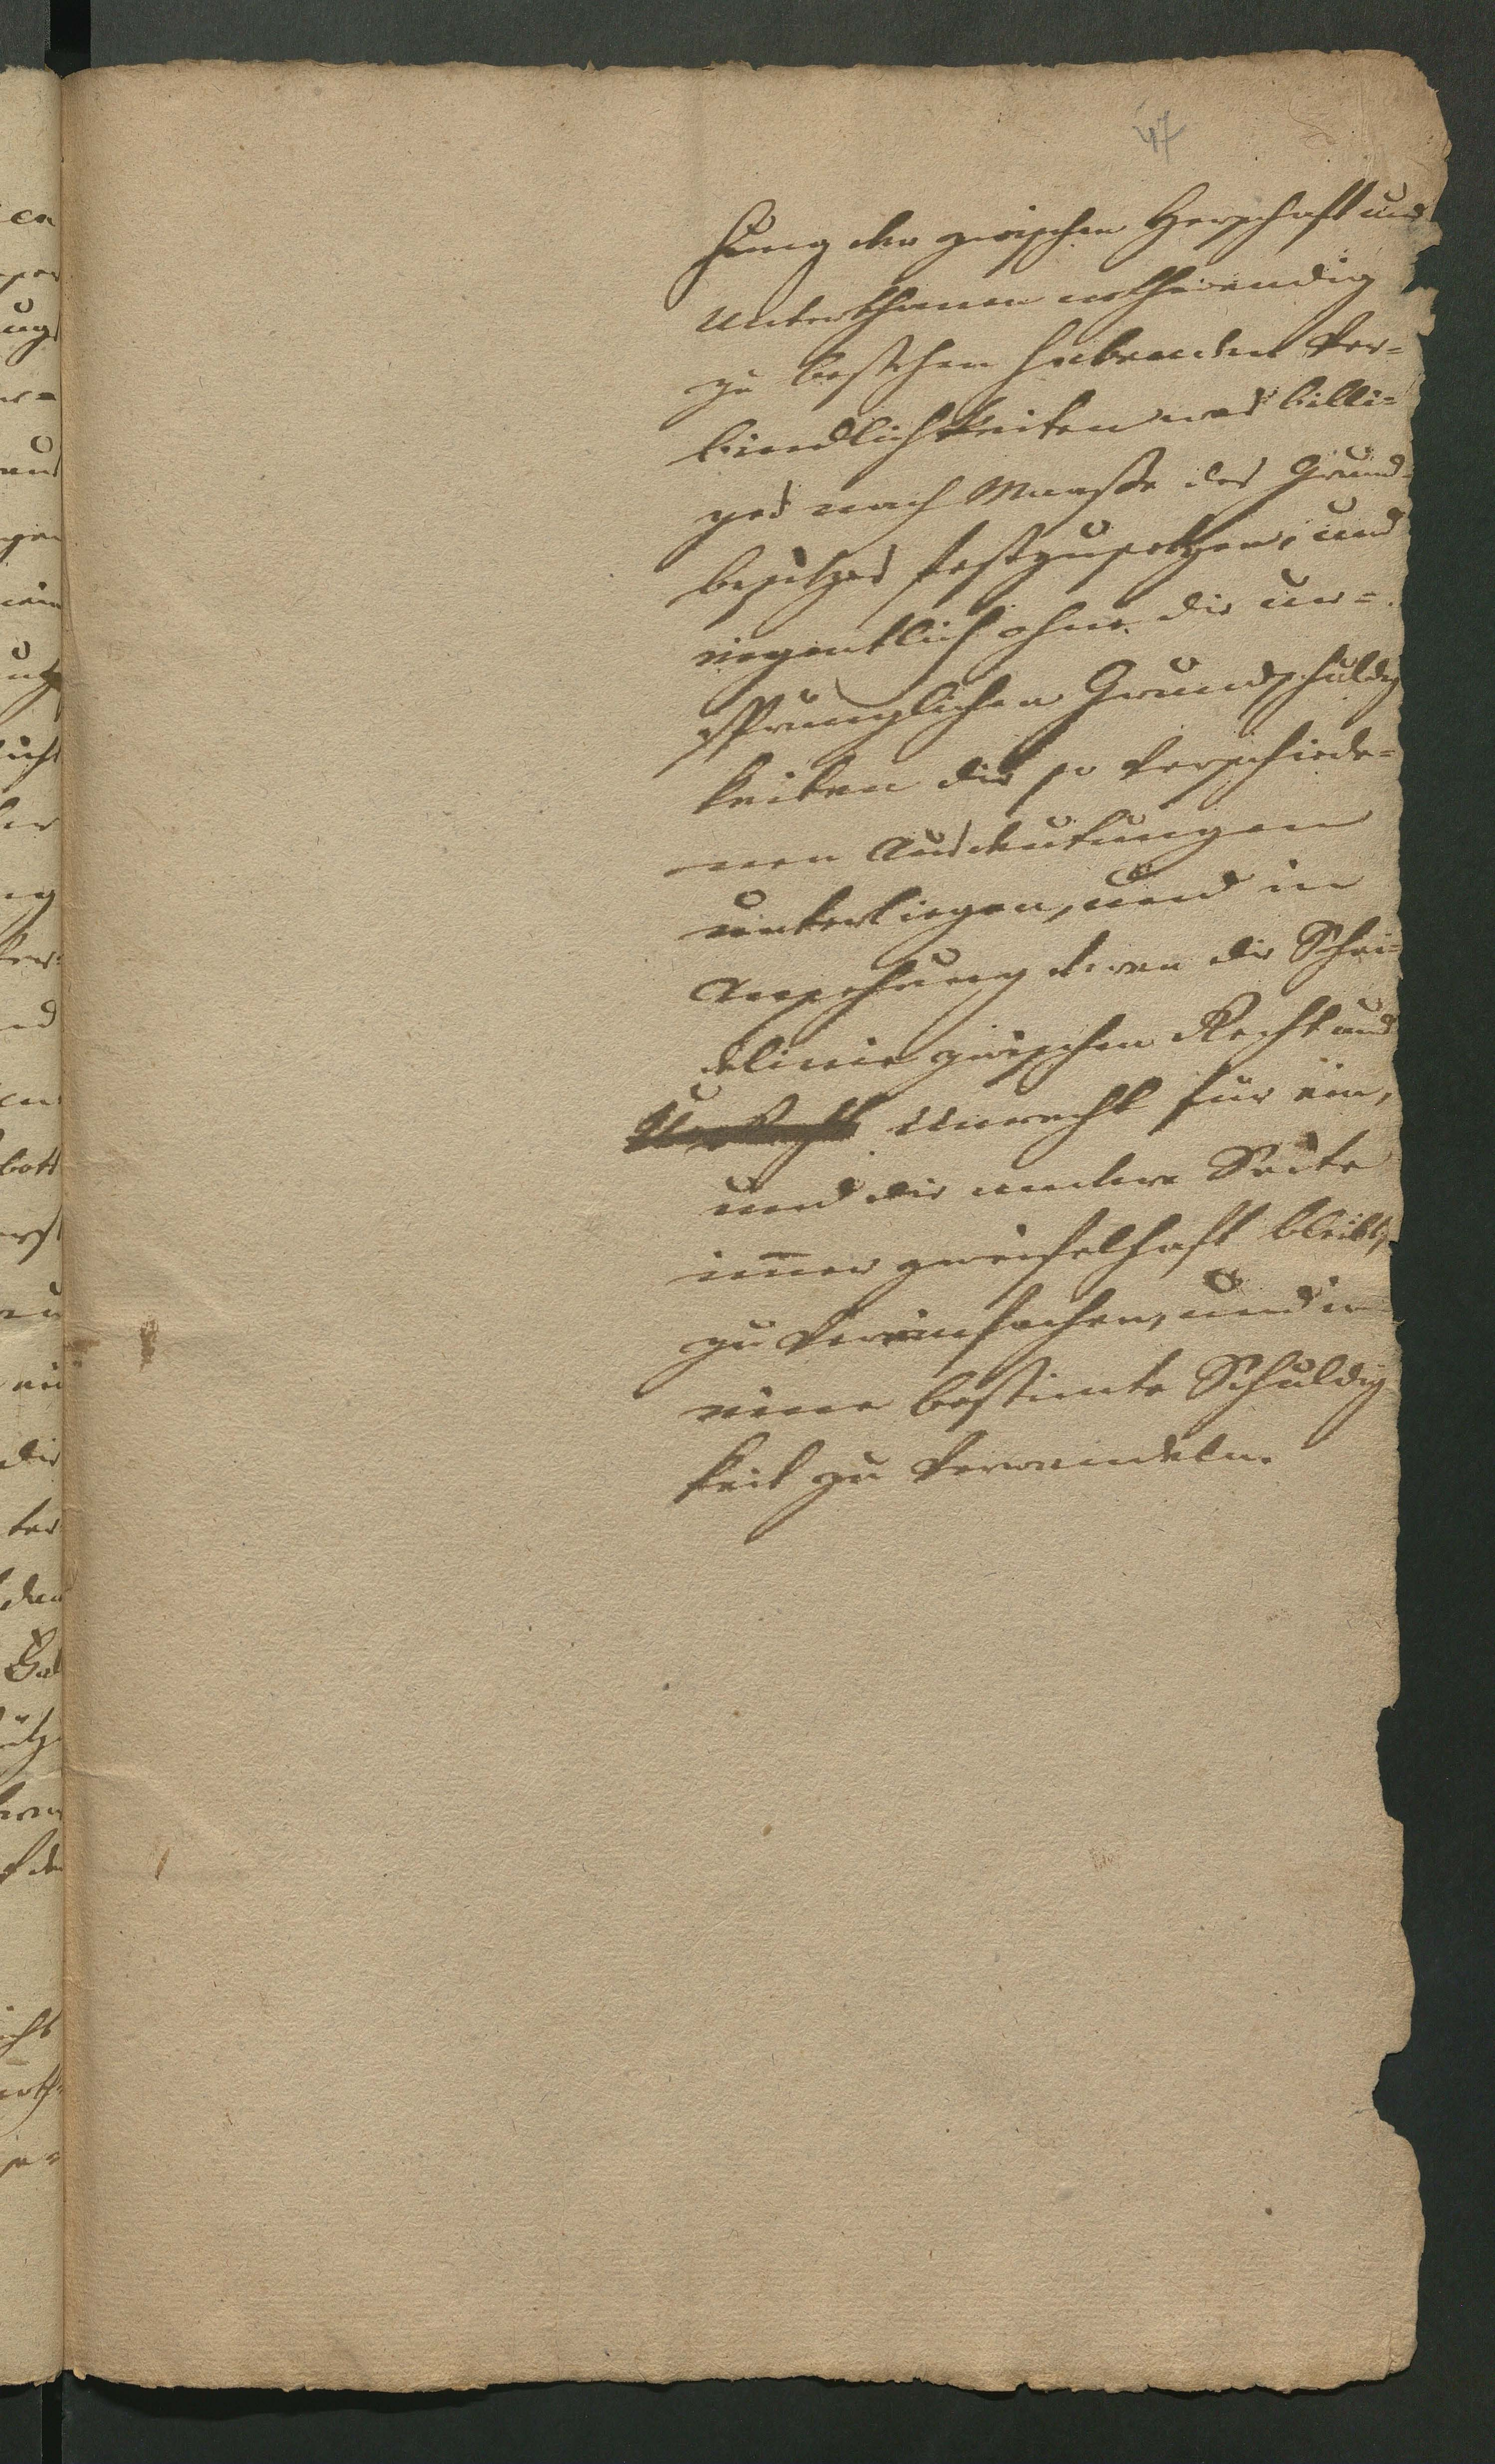 47
hung der zwischen Herschaft und
Unterthanen nothwendig
zu bestehen habenden Ver=
bindlichkeiten was billi=
ges nach Maaße des Grund=
besitzes festzusetzen, und
eigentlich ohne die ur=
sprünglichen Grundschuldig
keiten die so verschiede=
nen Ausdeutungen
unterliegen, und in
Ansehung deren die Schei=
delinie zwischen Recht und
Unrecht für ein,
und die andere Seite
im̅er zweifelhaft bleibt,
zu vereinfachen, und in
eine bestimte Schuldig
keit zu verwandeln.